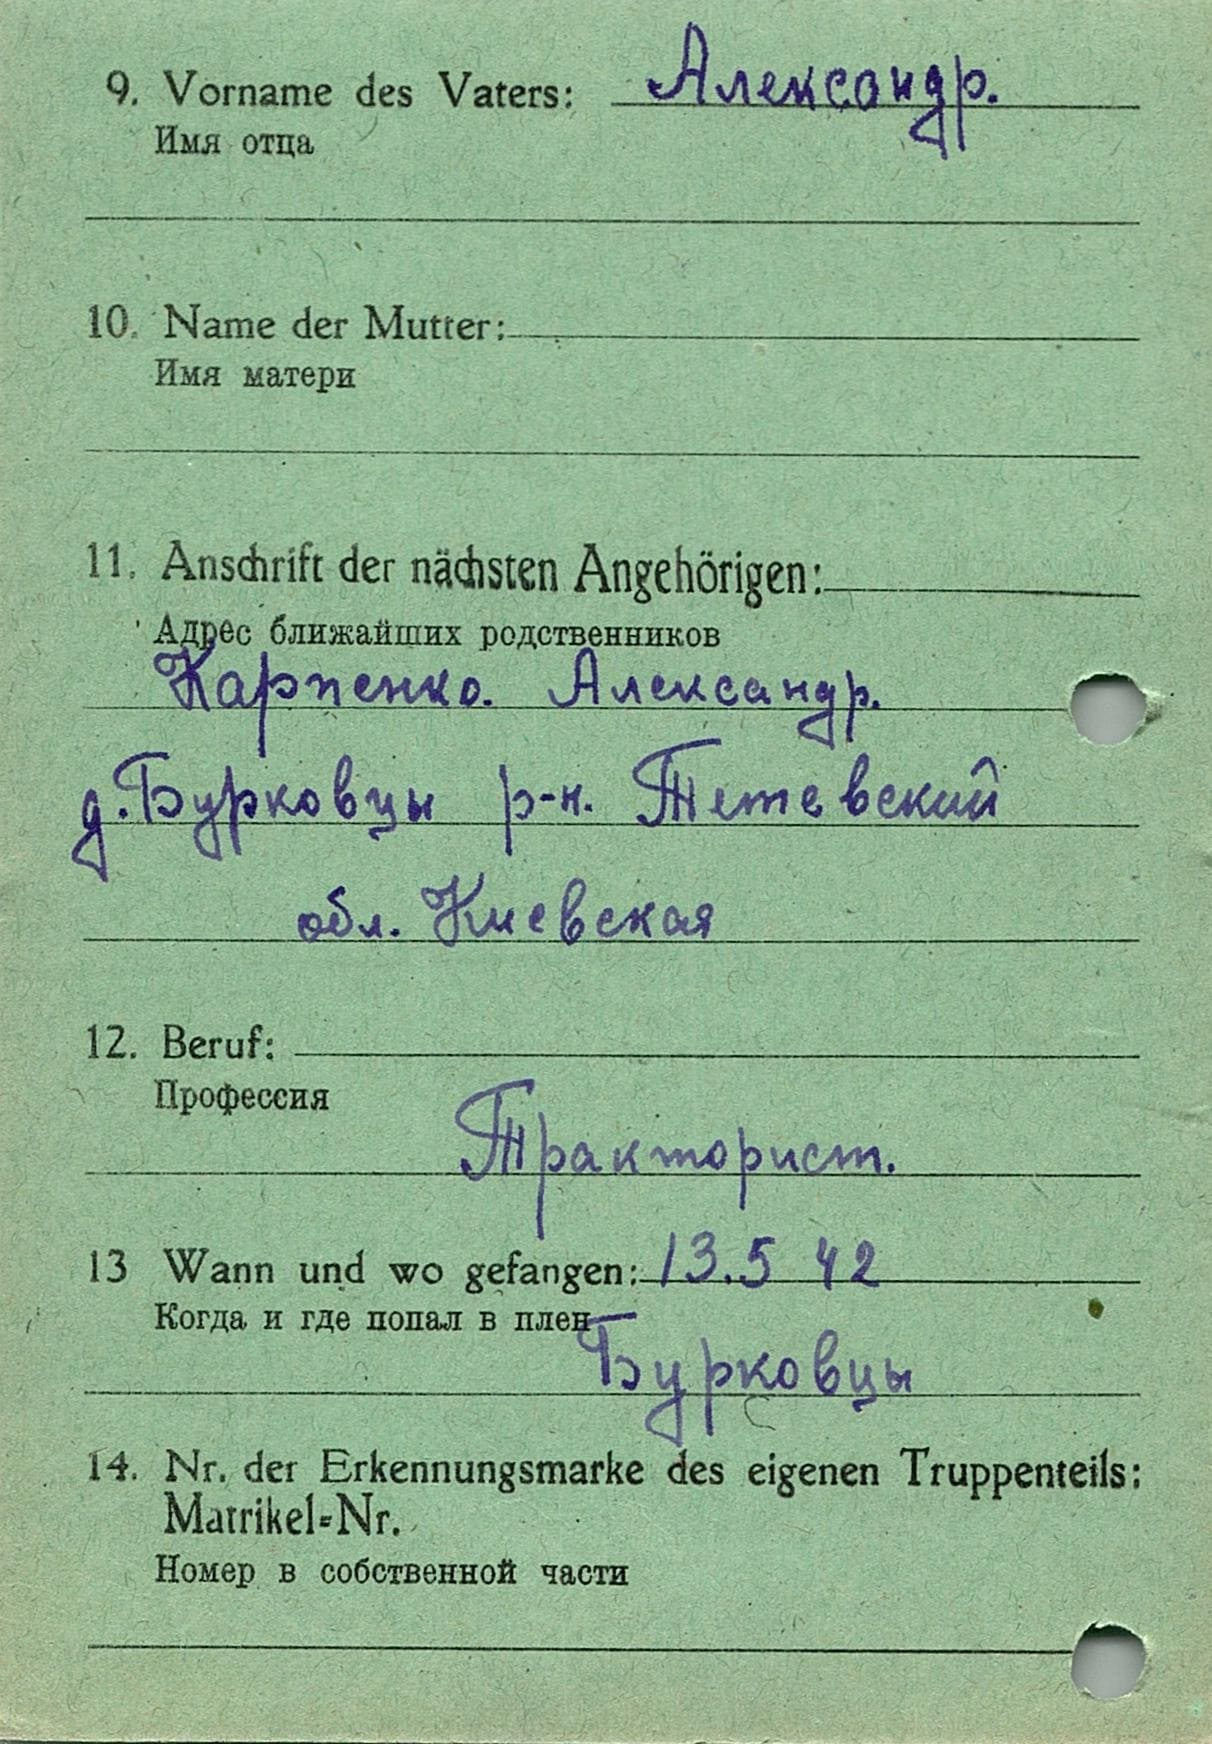 9. Vorname des Vaters: Александр.
Имя отца
10. Name der Mutter:
Имя матери
11. Anschrift der nächsten Angehörigen:
Адрес ближайших родственников
Карпенко. Александр.
д. Бурковцы р-н. Тетевский
обл. Киевская
12. Beruf:
Профессия
Тракторист.
13 Wann und wo gefangen: 13.5 42
Когда и где попал в плен
Бурковцы
14. Nr. der Erkennungsmarke des eigenen Truppenteils:
Matrikel-Nr.
Номер в собственной части